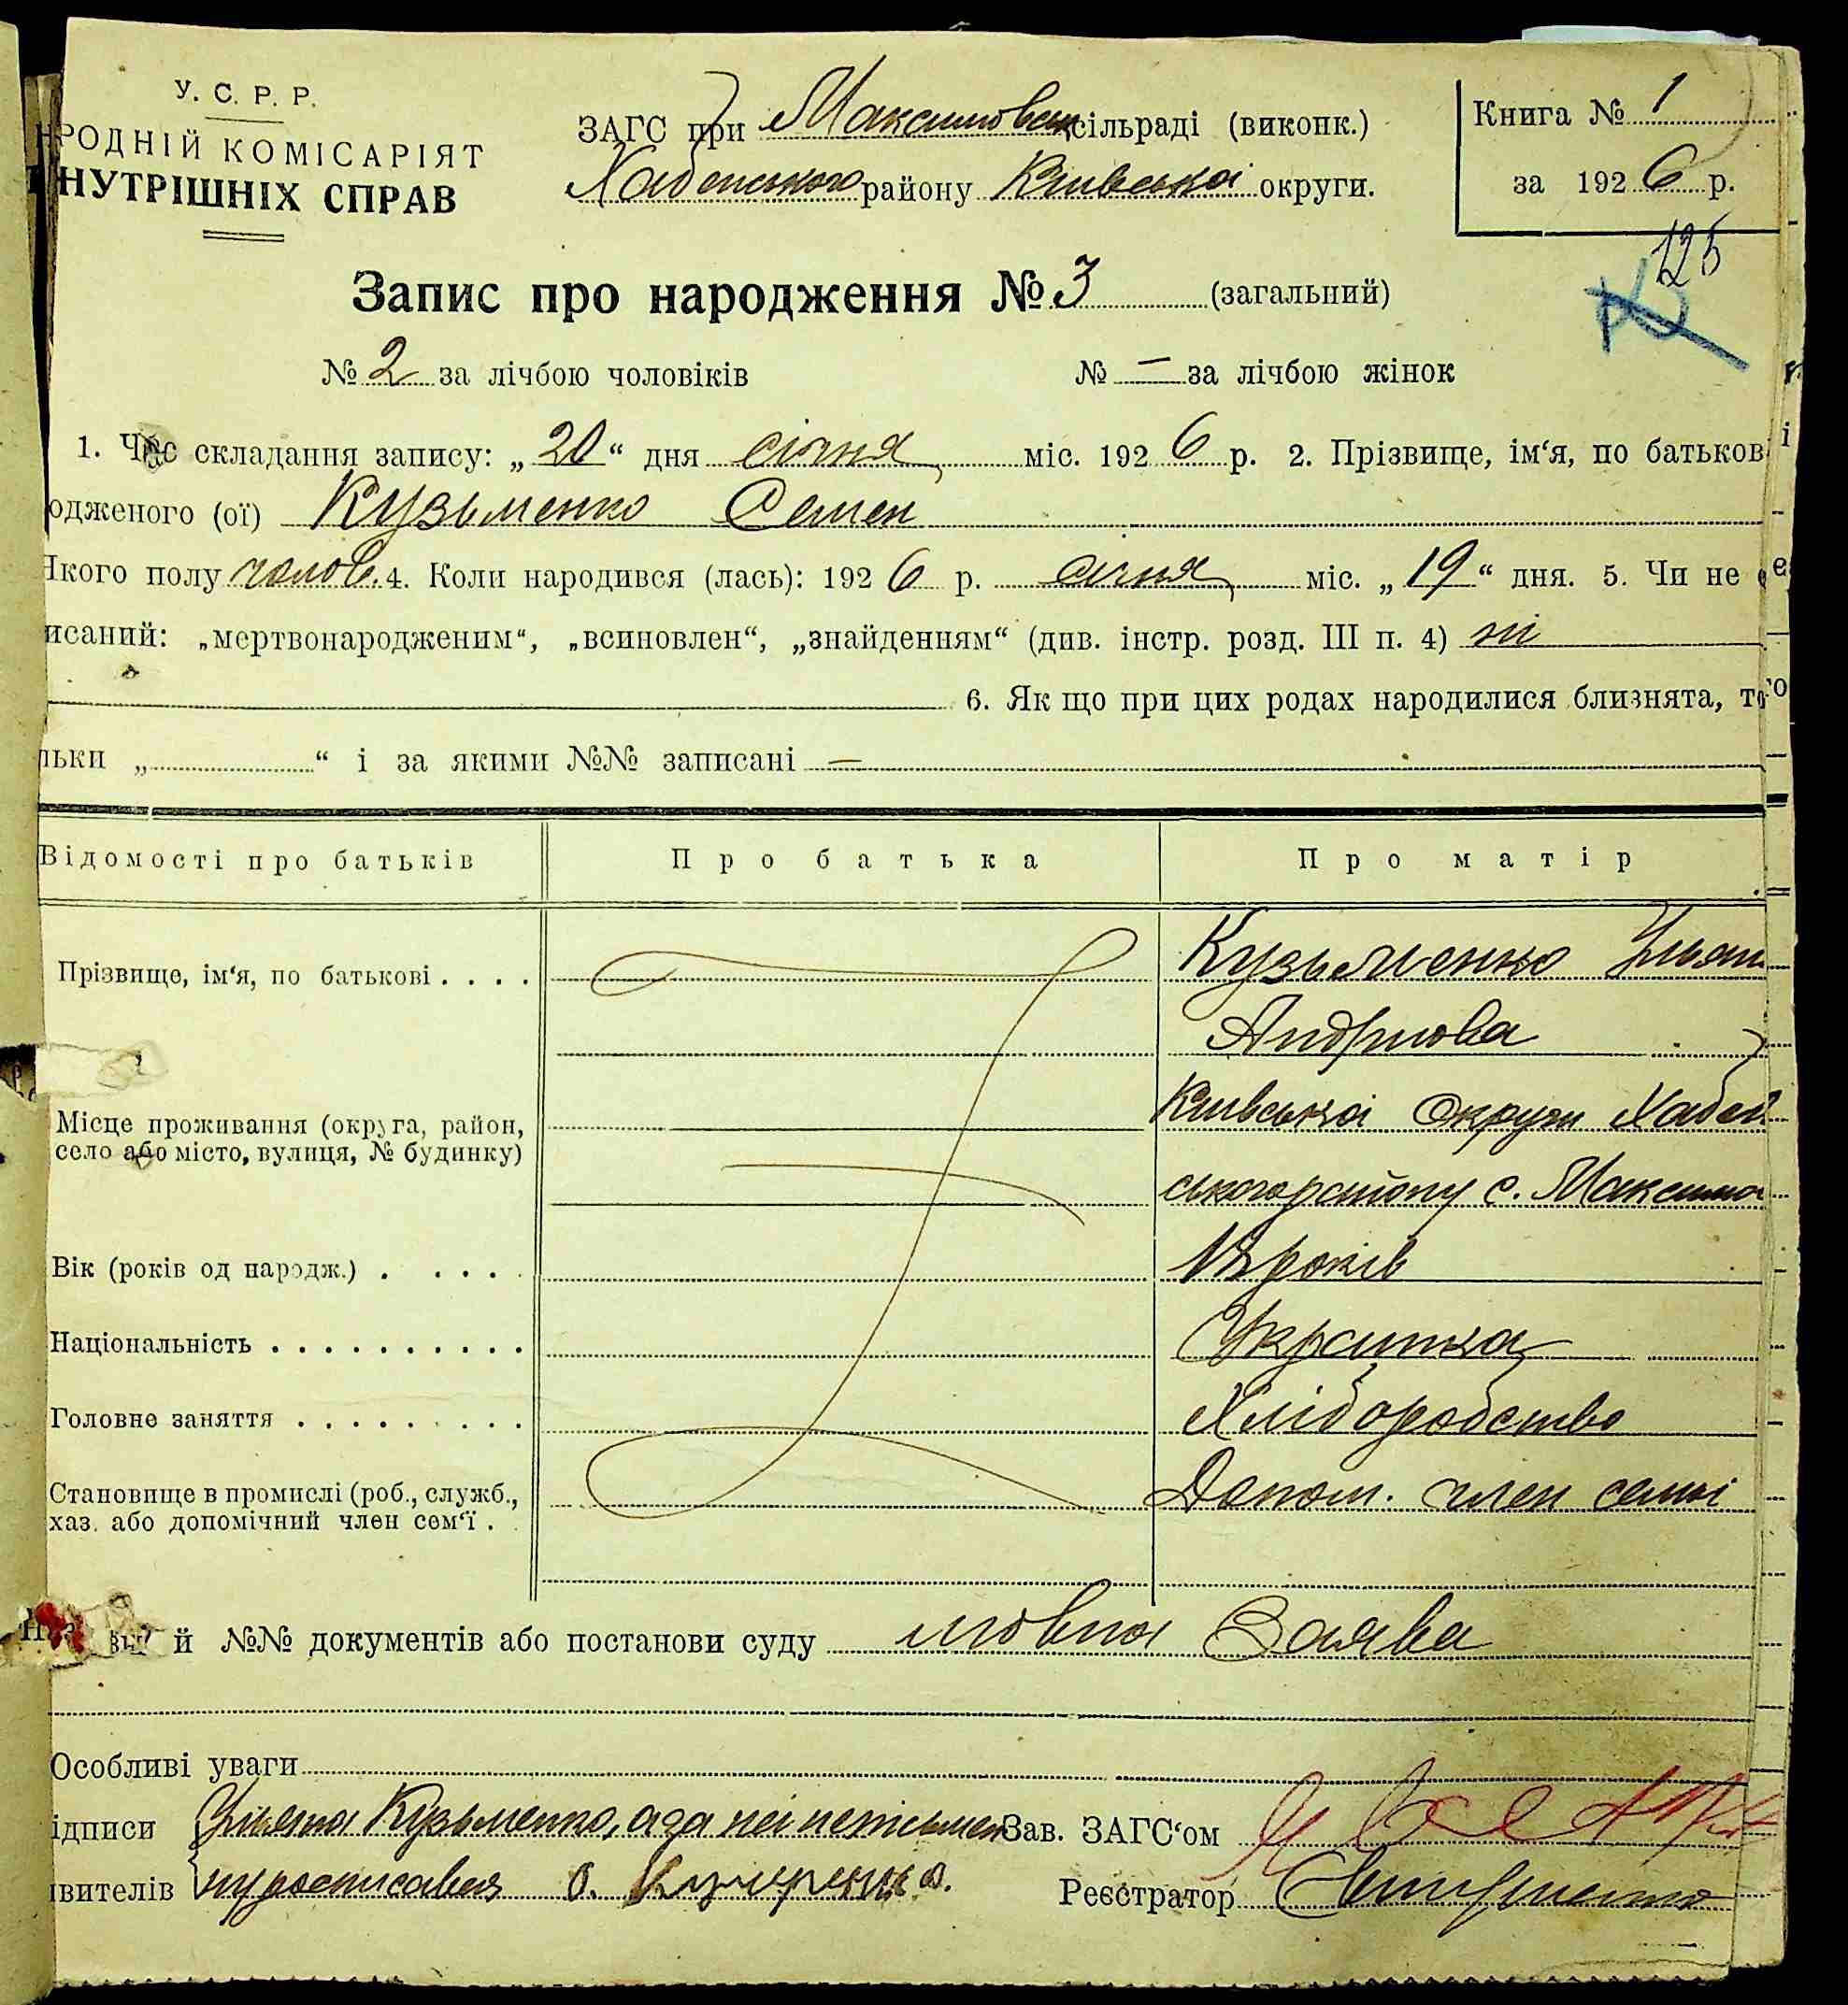 У. С. Р. Р.
РОДНІЙ КОМІСАРІЯТ
НУТРІШНІХ СПРАВ
ЗАГС при Максимовск сільраді (виконк.)
Хабенського району Київської округи.
Книга № 1
за 1926 р.
125
Запис про народження № 3 (загальний)
№ 2 за лічбою чоловіків № — за лічбою жінок
1. Час складання запису: „20“ дня січня міс. 1926 р. 2. Прізвище, ім‘я, по батькові
одженого (ої) Кузьменко Семен
Якого полу чолов. 4. Коли народився (лась): 1926 р. січня міс. „19“ дня. 5. Чи не
исаний: „мертвонародженим“, „всиновлен“, „знайденням“ (див. інстр. розд. III п. 4) ні
6. Як що при цих родах народилися близнята, то
льки „ “ і за якими №№ записані —
Відомості про батьків Про батька Про матір
Прізвище, ім‘я, по батькові . . . . Кузьменко Ульян
Андріова
Місце проживання (округа, район, село або місто, вулиця, № будинку) Київської Округи Хабен
ського району с. Максимо
Вік (років од народж.) . . . . . років
Національність . . . . . . . . . . Українка
Головне заняття . . . . . . . . . Хліборобство
Становище в промислі (роб., служб., хаз. або допомічний член сем‘ї . Допом. член семьї
й №№ документів або постанови суду мовна Заява
Особливі уваги
ідписи Ульяна Кузьменко, а за неї неписьмен Зав. ЗАГС‘ом
вителів
Реєстратор